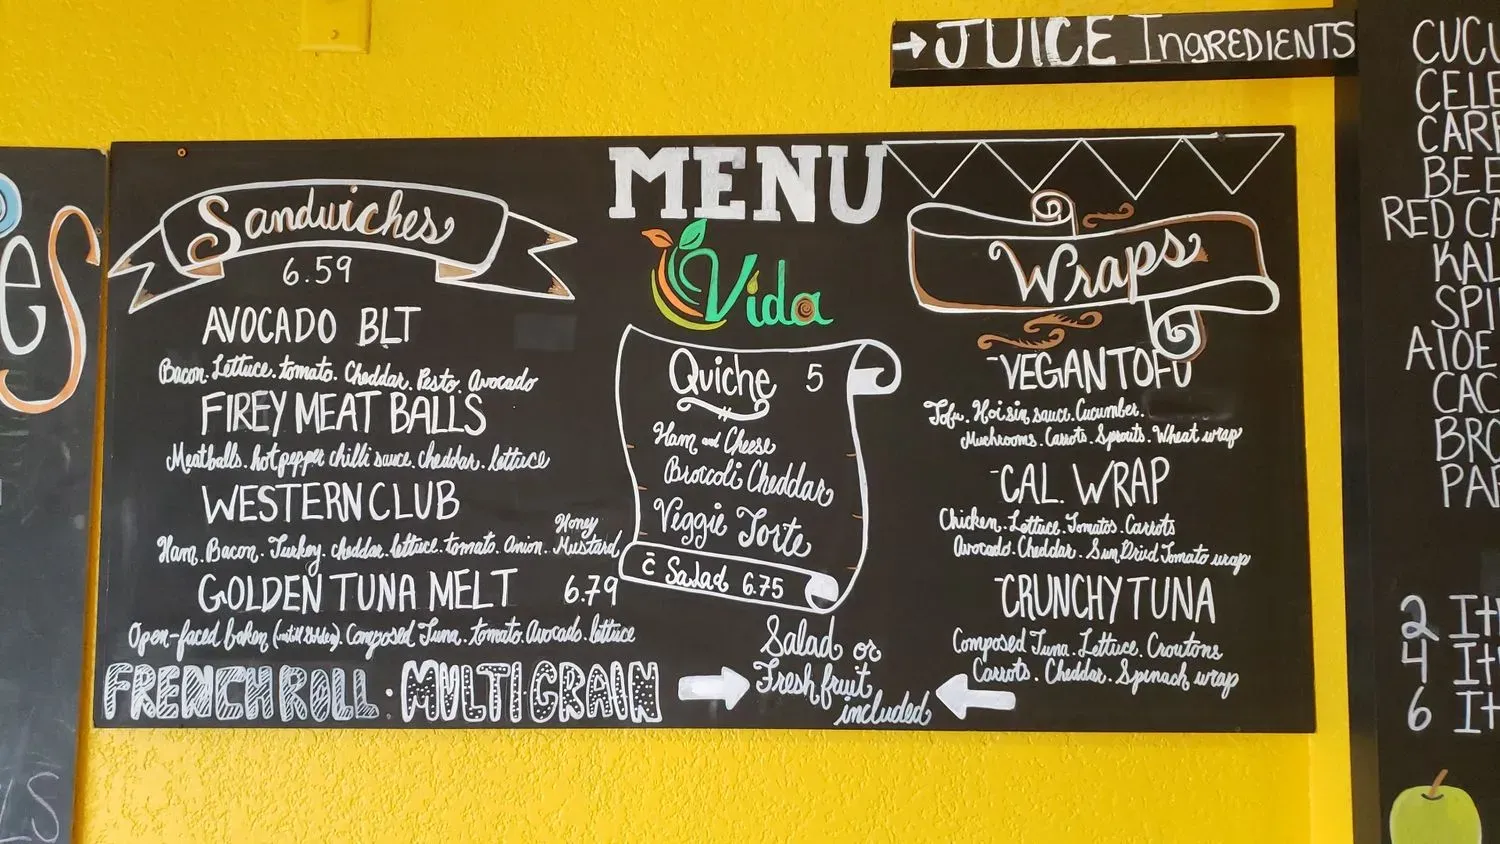 MENU
Vida
Sandwiches
6.59
AVOCADO BLT
Bacon. Lettuce. tomato. Cheddar. Pesto. Avocado
FIREY MEAT BALLS
Meatballs. hot pepper chilli sauce. cheddar. lettuce
WESTERN CLUB
Ham. Bacon. Turkey. cheddar. lettuce. tomato. Onion. Honey Mustard
GOLDEN TUNA MELT 6.79
Open-faced baken (until Golden). Composed Tuna. tomato. Avocado. lettuce
FRENCH ROLL · MULTI GRAIN
Quiche 5
Ham and Cheese
Broccoli Cheddar
Veggie Torte
c̄ Salad 6.75
Salad or
Fresh fruit
included
Wraps
-VEGAN TOFU
Tofu. Hoisin sauce. Cucumber.
Muchrooms. Carrots. Sprouts. Wheat wrap
-CAL. WRAP
Chicken. Lettuce. Tomatos. Carrots
Avocado. Cheddar. Sun Dried Tomato wrap
-CRUNCHY TUNA
Composed Tuna. Lettuce. Croutons
Carrots. Cheddar. Spinach wrap
→ JUICE INgREDIENTS
CUCU
CELE
CARR
BEE
RED CA
KAL
SPI
AlOE
CAC
BRO
PAR
2 It
4 It
6 It
es
LS